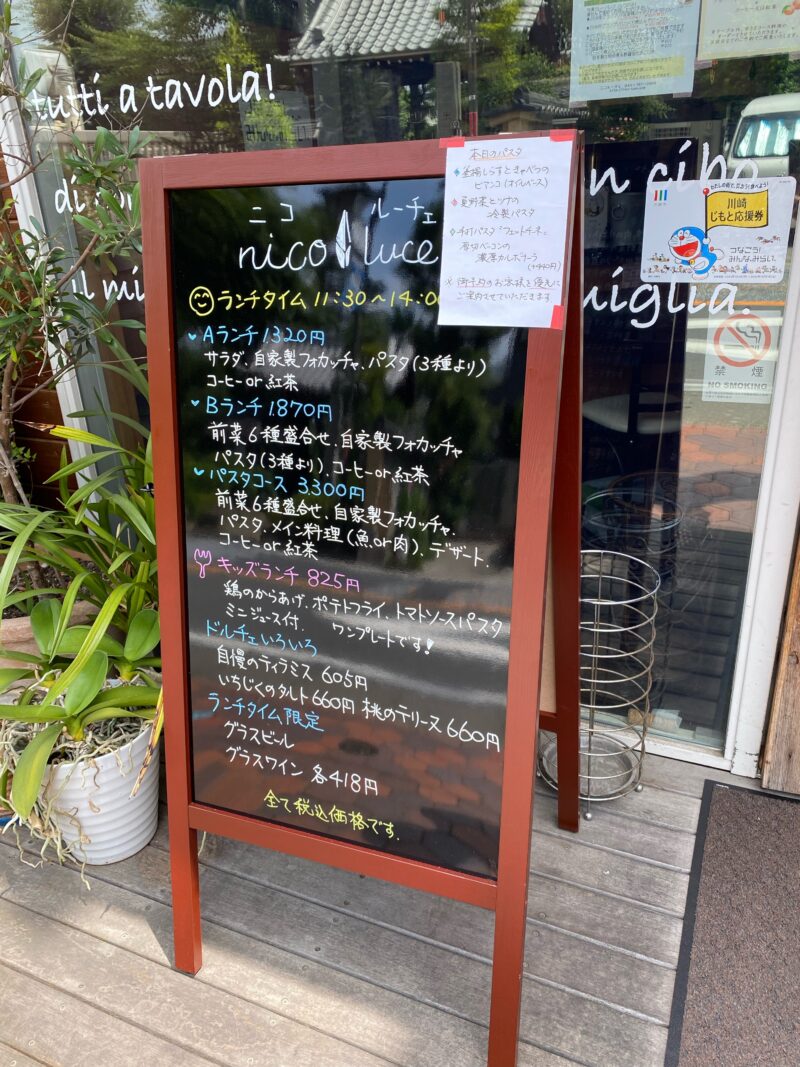 tutti a tavola!
本日のパスタ
釜揚しらすときゃべつの
ビアンコ(オイルベース)
夏野菜とツナの
冷製パスタ
厚切ベーコンの
濃厚カルボナーラ
ご案内させていただきます
川崎
じもと応援券
つなごう!
みんなみらい。
禁煙
NO SMOKING
ニコ ルーチェ
nico luce
ランチタイム 11:30～14:00
Aランチ 1.320円
サラダ、自家製フォカッチャ、パスタ(3種より)
コーヒーor紅茶
Bランチ 1.870円
前菜6種盛合せ、自家製フォカッチャ
パスタ(3種より)、コーヒーor紅茶
パスタコース 3.300円
前菜6種盛合せ、自家製フォカッチャ、
パスタ、メイン料理(魚or肉)、デザート、
コーヒーor紅茶
キッズランチ 825円
鶏のからあげ、ポテトフライ、トマトソースパスタ
ミニジュース付、 ワンプレートです!
ドルチェいろいろ
自慢のティラミス 605円
いちじくのタルト660円 桃のテリーヌ660円
ランチタイム限定
グラスビール
グラスワイン 各418円
全て税込価格です.